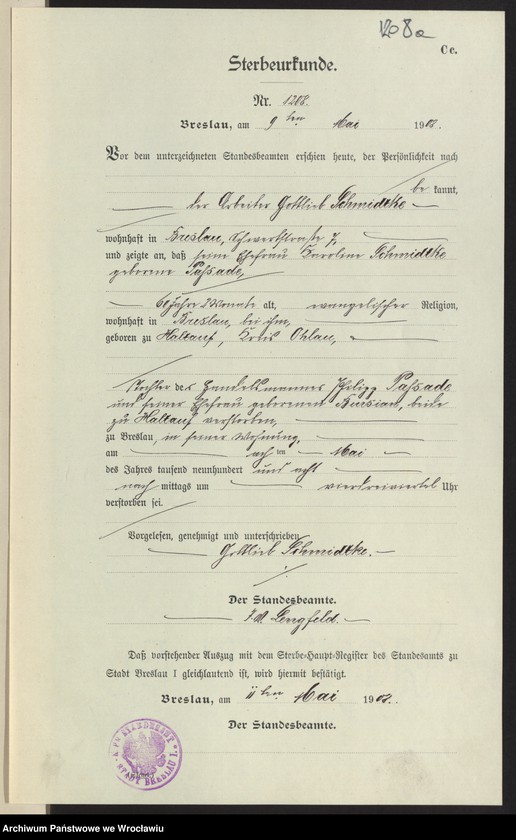 1208a
Ce.
Sterbeurkunde.
Nr. 1208.
Breslau, am 9ten Mai 1908.
Vor dem unterzeichneten Standesbeamten erschien heute, der Persönlichkeit nach
be kannt,
der Arbeiter Gottlieb Schmidtke
wohnhaft in Breslau, Schwertstrasse 7,
und zeigte an, daß seine Ehefrau Karoline Schmidtke
geborene Passade,
60 Jahre 2 Monate alt, evangelischer Religion,
wohnhaft in Breslau, bei ihm,
geboren zu Hattauf, Kreis Ohlau,
Tochter des Handelsmannes Philipp Passade
und seiner Ehefrau geborenen Kursian, beide
zu Hattauf verstorben,
zu Breslau, in seiner Wohnung,
am acht ten Mai
des Jahres tausend neunhundert und acht
nach mittags um vierdreiviertel Uhr
verstorben sei.
Vorgelesen, genehmigt und unterschrieben
Gottlieb Schmidtke.
Der Standesbeamte.
Lengfeld.
Daß vorstehender Auszug mit dem Sterbe-Haupt-Register des Standesamts zu
Stadt Breslau I gleichlautend ist, wird hiermit bestätigt.
Breslau, am 11ten Mai 1908.
Der Standesbeamte.
STANDESAMT
STADT BRESLAU I.
Archiwum Państwowe we Wrocławiu